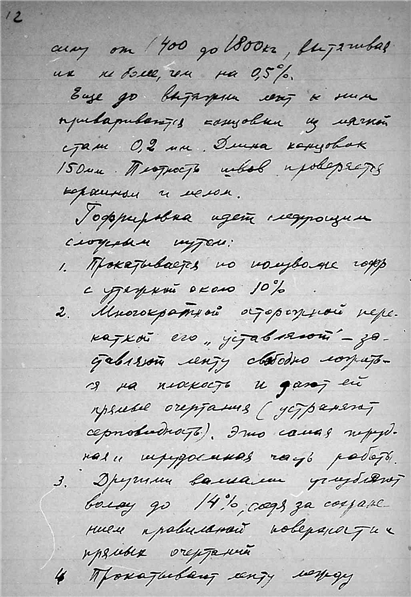 12
силу от 1400 до 1800 кг, вытягивая
их не более, чем на 0,5%.
Еще до вытяжки лент к ним
привариваются концовки из мягкой
стали 0,2 мм. Длина концовок
150 мм. Плотность швов проверяется
керосином и мелом.
Гофрировка идет следующим
сложным путем:
1. Прокатывается по полуволне гофр
с утяжкой около 10%
2. Многократной осторожной пере-
каткой его „уставляют" – за-
ставляют ленту свободно ложить-
ся на плоскость и дают ей
прямые очертания (устраняют
серповидность). Это самая труд-
ная и трудоемкая часть работы.
3. Другими валками углубляют
волну до 14%, следя за сохране-
нием правильной поверхности и
прямых очертаний
4. Прокатывают ленту между